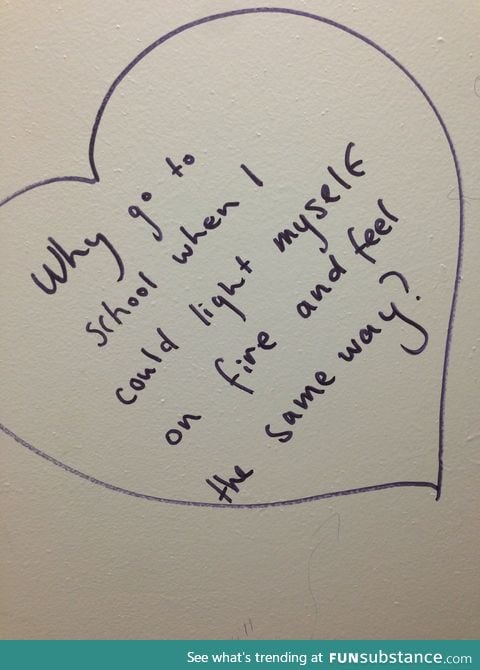 Why go to
school when I
could light myself
on fire and feel
the same way?
See what's trending at FUNsubstance.com